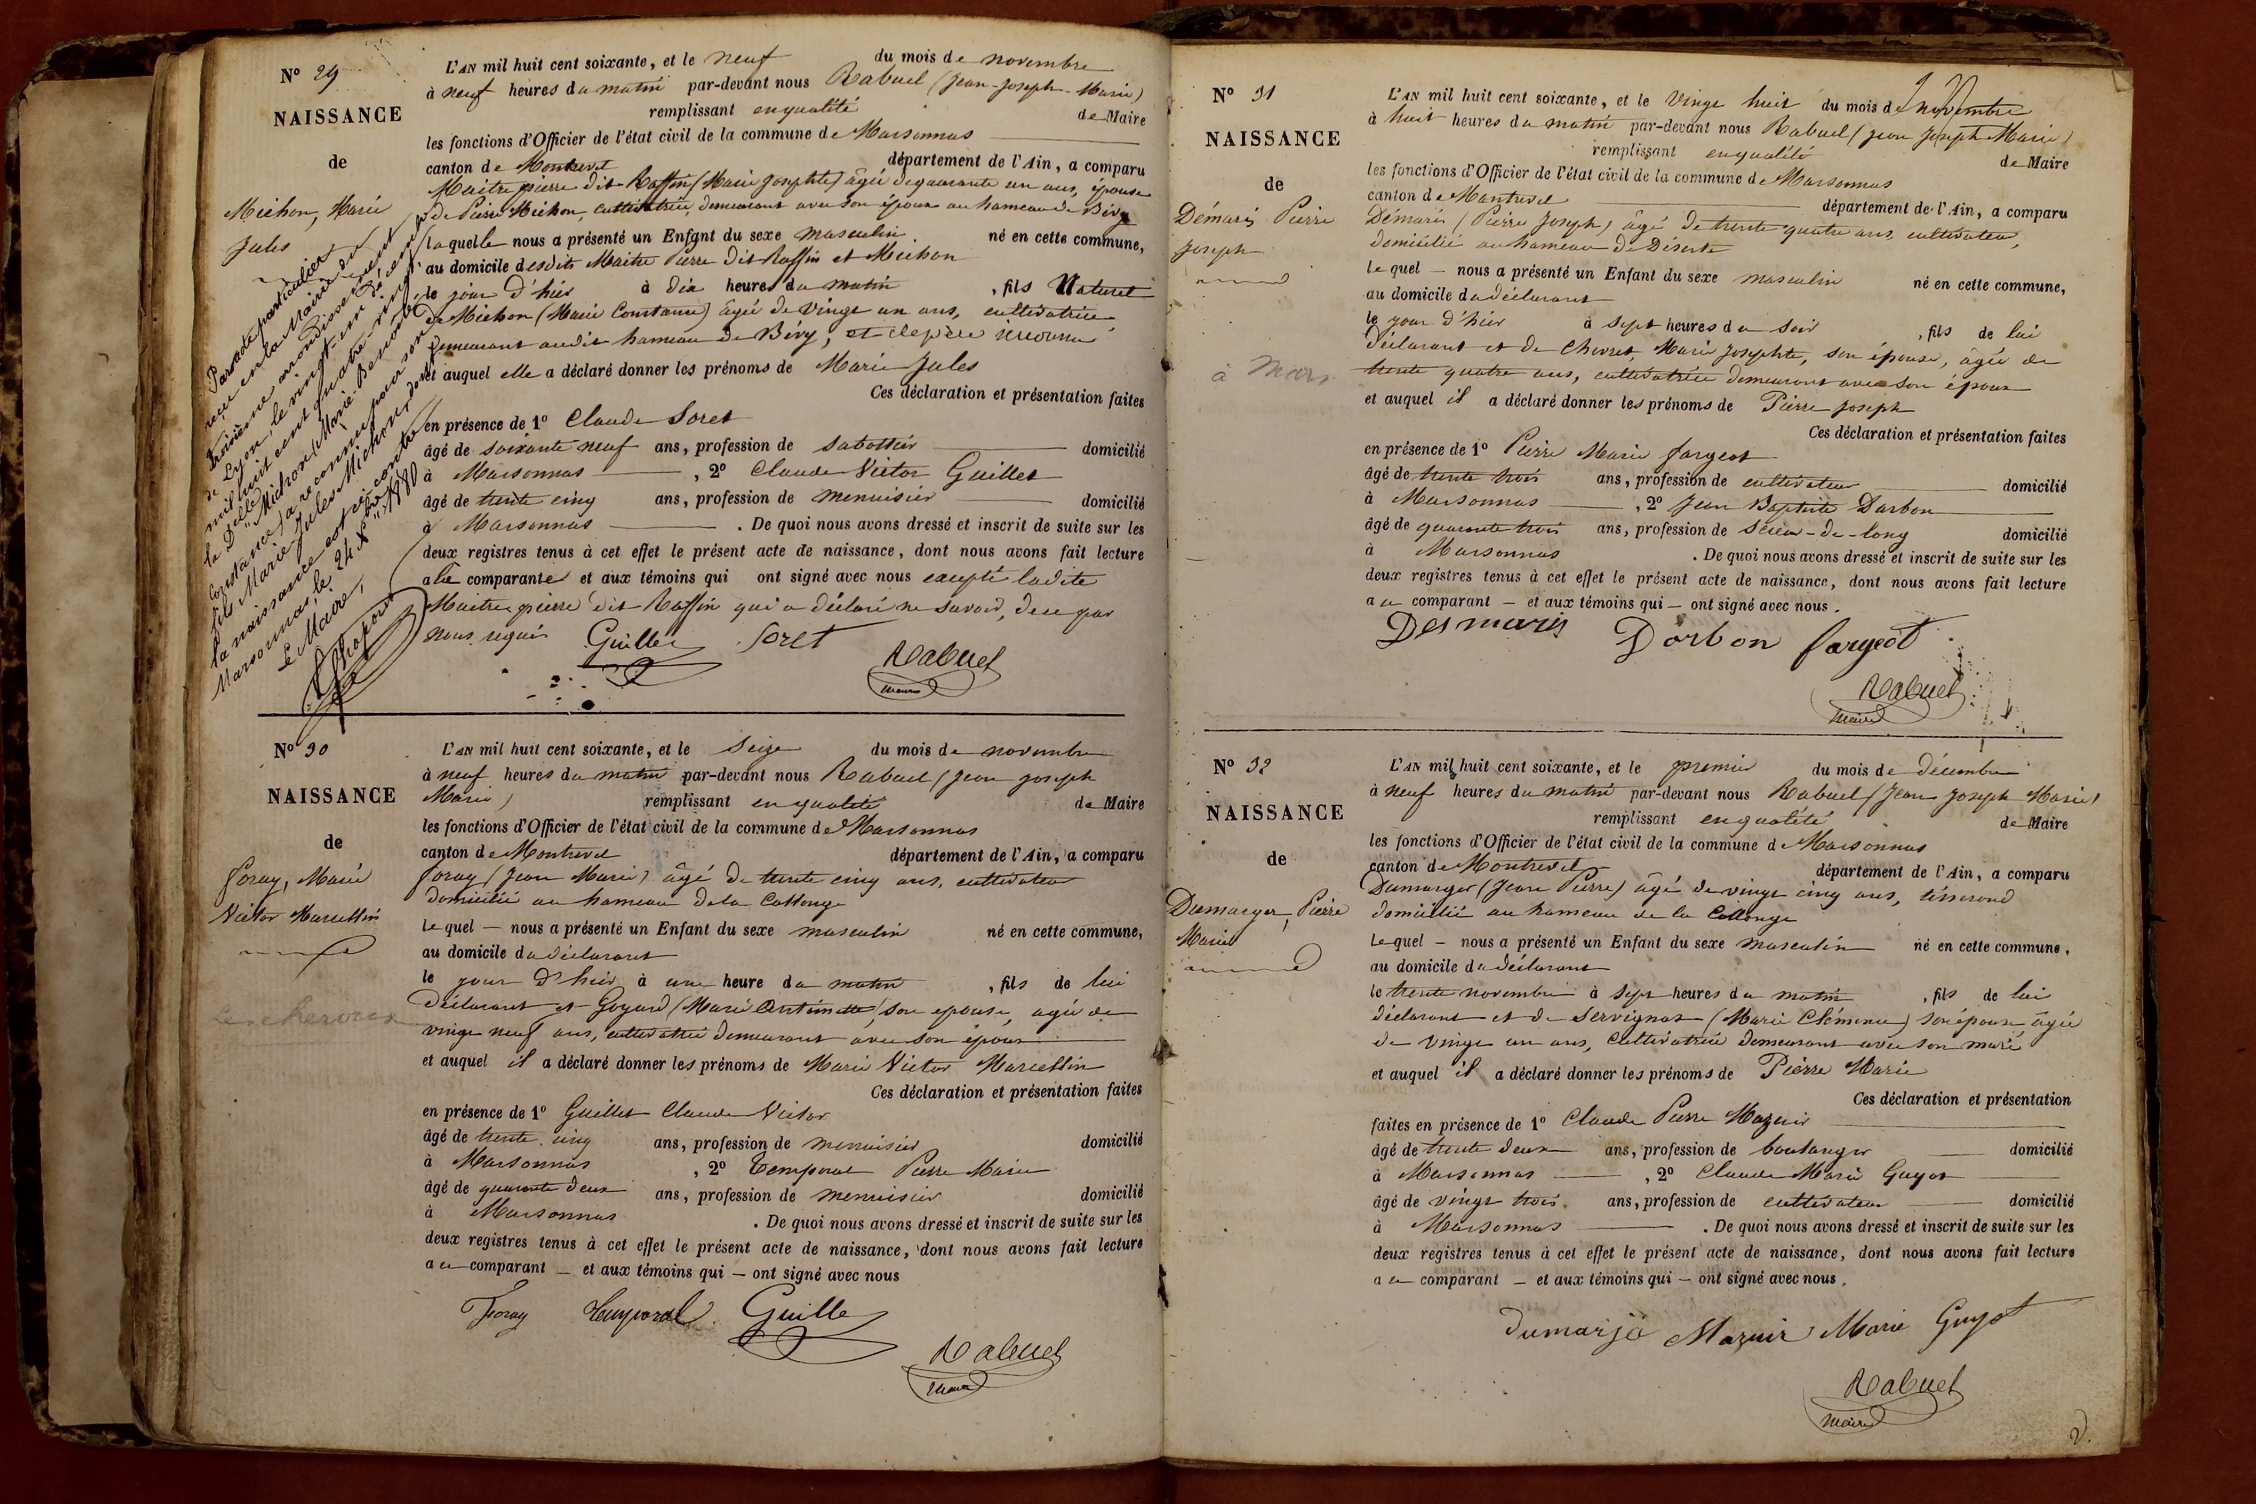 N° 29
NAISSANCE
de
Michon, Marie
Jules
Par acte particulier
reçu en la Mairie du
troisième arrondissement
de Lyon, le vingt-un décembre
mil huit cent quatre-vingt,
la Delle Michon (Marie-Benoite
Constance) a reconnu pour son
fils Marie Jules Michon, dont
la naissance est ci-contre
Marsonnas, le 24 Xbre 1880
Le Maire,
L'AN mil huit cent soixante, et le neuf du mois de novembre
à neuf heures du matin par-devant nous Rabuel (Jean-Joseph-Marie)
remplissant en qualité de Maire
les fonctions d'Officier de l'état civil de la commune de Marsonnas
canton de Montrevel département de l'Ain, a comparu
Maitre pierre dit Raffin (Marie Josephte) âgée de quarante un ans, épouse
de Pierre Michon, cultivatrice, demeurant avec son époux au hameau de Bévy
laquelle nous a présenté un Enfant du sexe masculin né en cette commune,
au domicile desdits Maitre Pierre dit Raffin et Michon
le jour d'hier à dix heures du matin, fils Naturel
de Michon (Marie Constance) âgée de vingt un ans, cultivatrice,
demeurant audit hameau de Bévy, et de père inconnu
et auquel elle a déclaré donner les prénoms de Marie Jules
Ces déclaration et présentation faites
en présence de 1° Claude Soret
âgé de soixante neuf ans, profession de sabottier domicilié
à Marsonnas, 2° Claude Victor Guillet
âgé de trente cinq ans, profession de menuisier domicilié
à Marsonnas. De quoi nous avons dressé et inscrit de suite sur les
deux registres tenus à cet effet le présent acte de naissance, dont nous avons fait lecture
a la comparante et aux témoins qui ont signé avec nous excepté ladite
Maitre pierre dit Raffin qui a déclaré ne savoir, de ce par
nous requis
Guillet Soret
Rabuel
maire
N° 30
NAISSANCE
de
Foray, Marie
Victor Marcellin
L'AN mil huit cent soixante, et le seize du mois de novembre
à neuf heures du matin par-devant nous Rabuel (Jean Joseph
Marie) remplissant en qualité de Maire
les fonctions d'Officier de l'état civil de la commune de Marsonnas
canton de Montrevel département de l'Ain, a comparu
Foray (Jean Marie) âgé de trente cinq ans, cultivateur
domicilié au hameau de la Collonge
lequel — nous a présenté un Enfant du sexe masculin né en cette commune,
au domicile du déclarant
le jour d'hier à une heure du matin, fils de lui
déclarant et Goyard (Marie Antoinette), son épouse, agée de
vingt neuf ans, cultivatrice demeurant avec son époux
et auquel il a déclaré donner les prénoms de Marie Victor Marcellin
Ces déclaration et présentation faites
en présence de 1° Guillet Claude Victor
âgé de trente cinq ans, profession de menuisier domicilié
à Marsonnas, 2° Temporal Pierre Marie
âgé de quarante deux ans, profession de menuisier domicilié
à Marsonnas. De quoi nous avons dressé et inscrit de suite sur les
deux registres tenus à cet effet le présent acte de naissance, dont nous avons fait lecture
au comparant — et aux témoins qui — ont signé avec nous
Foray Temporal Guille
Rabuel
maire
N° 31
NAISSANCE
de
Démaris Pierre
Joseph
à Mars
L'AN mil huit cent soixante, et le vingt huit du mois de novembre
à huit heures du matin par-devant nous Rabuel (Jean Joseph Marie)
remplissant en qualité de Maire
les fonctions d'Officier de l'état civil de la commune de Marsonnas
canton de Montrevel département de l'Ain, a comparu
Démaris (Pierre Joseph) âgé de trente quatre ans, cultivateur,
domicilié au hameau de Déserte
lequel — nous a présenté un Enfant du sexe masculin né en cette commune,
au domicile du déclarant
le jour d'hier à sept heures du soir, fils de lui
déclarant et de Chevret, Marie Josephte, son épouse, âgée de
trente quatre ans, cultivatrice demeurant avec son époux
et auquel il a déclaré donner les prénoms de Pierre Joseph
Ces déclaration et présentation faites
en présence de 1° Pierre Marie fargeot
âgé de trente trois ans, profession de cultivateur domicilié
à Marsonnas, 2° Jean Baptiste Darbon
âgé de quarante trois ans, profession de scieur-de-long domicilié
à Marsonnas. De quoi nous avons dressé et inscrit de suite sur les
deux registres tenus à cet effet le présent acte de naissance, dont nous avons fait lecture
au comparant — et aux témoins qui — ont signé avec nous.
Desmaris Dorbon fargeot
Rabuel
maire
N° 32
NAISSANCE
de
Dumarger, Pierre
Marie
L'AN mil huit cent soixante, et le premier du mois de décembre
à neuf heures du matin par-devant nous Rabuel (Jean Joseph Marie)
remplissant en qualité de Maire
les fonctions d'Officier de l'état civil de la commune de Marsonnas
canton de Montrevel département de l'Ain, a comparu
Dumarger (Jean Pierre) âgé de vingt cinq ans, tisserand
domicilié au hameau de la Collonge
lequel — nous a présenté un Enfant du sexe masculin né en cette commune,
au domicile du déclarant
le trente novembre à sept heures du matin, fils de lui
déclarant et de Servignat (Marie Clémence) son épouse âgée
de vingt un ans, cultivatrice demeurant avec son mari
et auquel il a déclaré donner les prénoms de Pierre Marie
Ces déclaration et présentation
faites en présence de 1° Claude Pierre Mazuir
âgé de trente deux ans, profession de boulanger domicilié
à Marsonnas, 2° Claude Marie Guyot
âgé de vingt trois ans, profession de cultivateur domicilié
à Marsonnas. De quoi nous avons dressé et inscrit de suite sur les
deux registres tenus à cet effet le présent acte de naissance, dont nous avons fait lecture
au comparant — et aux témoins qui — ont signé avec nous.
dumarjé Mazuir Marie Guyot
Rabuel
maire